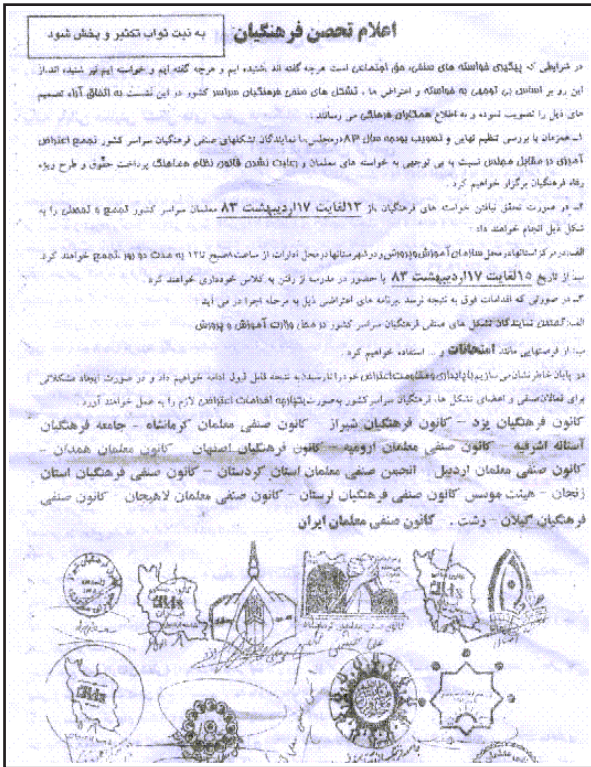 به نیت ثواب تکثیر و بخش شود
اعلام تحصن فرهنگیان
در شرایطی که پیگیری خواسته های صنفی، حق اجتماعی است هرچه گفته اند شنیده ایم و هرچه گفته ایم و خواسته ایم نیز شنیده اند.از
این رو بر اساس بی توجهی به خواسته و اعتراض ها ، تشکل های صنفی فرهنگیان سراسر کشور در این نشست به اتفاق آراء تصمیم
های ذیل را تصویب نموده و به اطلاع همکاران فرهنگی می رسانند :
۱ـ همزمان با بررسی تنظیم نهایی و تصویب بودجه سال ۸۳ درمجلس،ما نمایندگان تشکلهای صنفی فرهنگیان سراسر کشور تجمع اعتراض
آمیزی در مقابل مجلس نسبت به بی توجهی به خواسته های معلمان و رعایت نشدن قانون نظام هماهنگ پرداخت حقوق و طرح ویژه
رفاه فرهنگیان برگزار خواهیم کرد .
۲ـ در صورت تحقق نیافتن خواسته های فرهنگیان ،از ۱۳لغایت ۱۷اردیبهشت ۸۳ معلمان سراسر کشور تجمع و تحصنی را به
شکل ذیل انجام خواهند داد :
الف:در مرکز استانها در محل سازمان آموزش وپرورش ودر شهرستانها در محل ادارات، از ساعت ۸صبح تا۱۲ به مدت دو روز تجمع خواهند کرد.
ب: از تاریخ ۱۵لغایت ۱۷اردیبهشت ۸۳ با حضور در مدرسه از رفتن به کلاس خودداری خواهند کرد .
۳ـ در صورتی که اقدامات فوق به نتیجه نرسد ،برنامه های اعتراضی ذیل به مرحله اجرا در می آید
الف: تحصن نمایندگان تشکل های صنفی فرهنگیان سراسر کشور در محل وزارت آموزش و پرورش
ب: از فرصتهایی مانند امتحانات و ... استفاده خواهیم کرد .
در پایان خاطرنشان می سازیم با پایداری و مقاومت اعتراض خود را تا رسیدن به نتیجه قابل قبول ادامه خواهیم داد و در صورت ایجاد مشکلاتی
برای فعالان صنفی و اعضای تشکل ها، فرهنگیان سراسر کشور به صورت یکپارچه اقدامات اعتراضی لازم را به عمل خواهند آورد .
کانون فرهنگیان یزد – کانون فرهنگیان شیراز – کانون صنفی معلمان کرمانشاه – جامعه فرهنگیان
آستانه اشرفیه – کانون صنفی معلمان ارومیه – کانون فرهنگیان اصفهان – کانون معلمان همدان –
کانون صنفی معلمان اردبیل – انجمن صنفی معلمان استان کردستان – کانون صنفی فرهنگیان استان
زنجان – هیئت موسس کانون صنفی فرهنگیان لرستان – کانون صنفی معلمان لاهیجان – کانون صنفی
فرهنگیان گیلان – رشت . کانون صنفی معلمان ایران